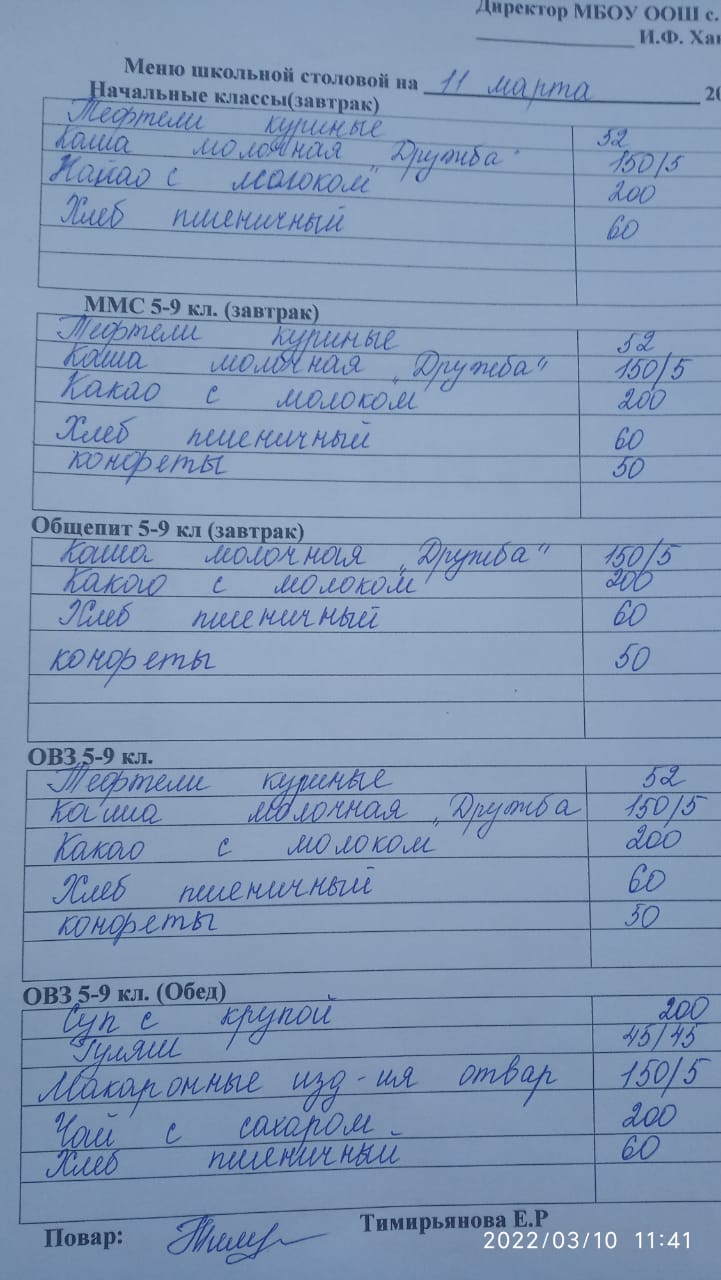 Директор МБОУ ООШ с.
И.Ф. Хан
Меню школьной столовой на 11 марта 20
Начальные классы(завтрак)
Тефтели куриные 52
Каша молочная „Дружба" 150/5
Какао с молоком 200
Хлеб пшеничный 60
ММС 5-9 кл. (завтрак)
Тефтели куриные 52
Каша молочная „Дружба" 150/5
Какао с молоком 200
Хлеб пшеничный 60
конфеты 50
Общепит 5-9 кл (завтрак)
Каша молочная „Дружба" 150/5
Какао с молоком 200
Хлеб пшеничный 60
конфеты 50
ОВЗ 5-9 кл.
Тефтели куриные 52
Каша молочная „Дружба 150/5
Какао с молоком 200
Хлеб пшеничный 60
конфеты 50
ОВЗ 5-9 кл. (Обед)
Суп с крупой 200
Гуляш 45/45
Макаронные изд-ия отвар 150/5
Чай с сахаром 200
Хлеб пшеничный 60
Повар: Тимирьянова Е.Р
2022/03/10 11:41